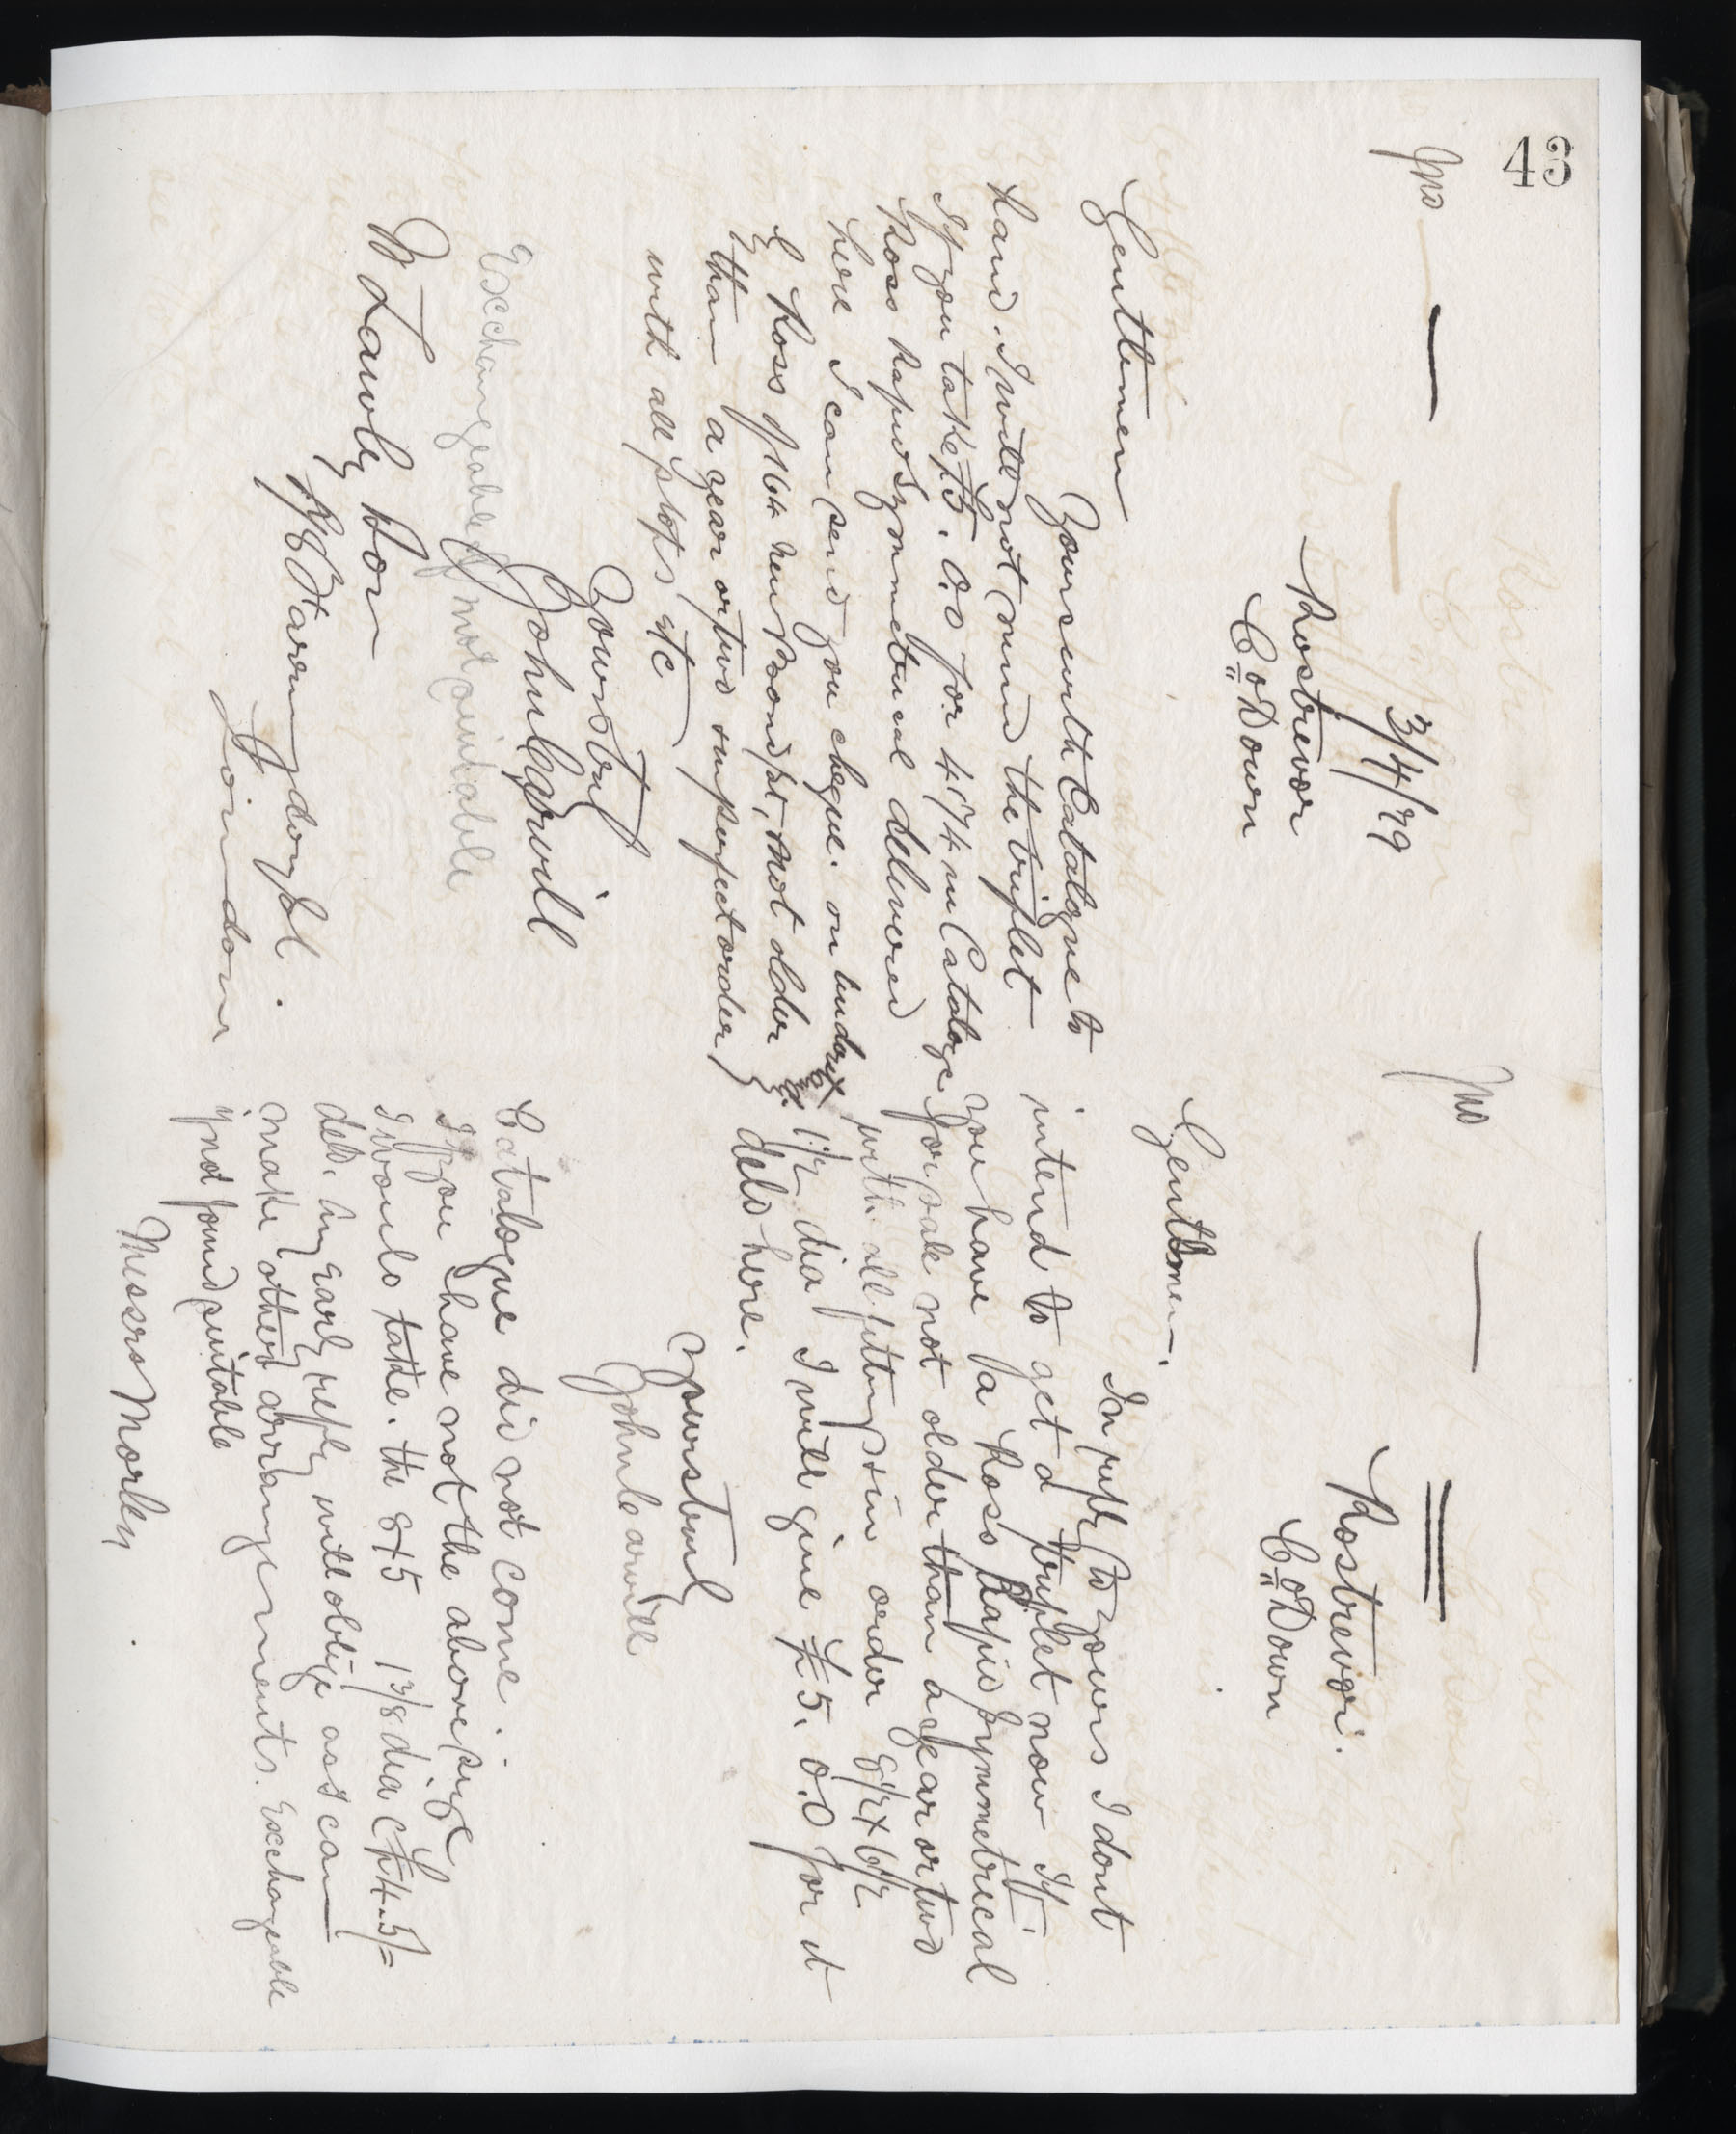 43
Jno
3/4/79
Rostrevor
Co Down
Gentlemen
Yours with Catalogue to
hand. I will not mind the triplet
If you take £5.0.0 for 4174 in Catalogue
Ross Rapid Symmetrical delivered
here I can send you cheque. or
Ross
not older
than a year or two in perfect order
with all stops etc
Yours truly
John Carvill
Exchangeable if not suitable
W Lawley & Son
78 Farringdon St.
London
Jno
Rostrevor.
Co Down
Gentlemen.
In reply to yours I dont
intend to get a triplet now If
you have a Ross Rapid Symmetrical
for sale not older than a year or two
with all fittings & in order 8 1/2 x 6 1/2
1 1/2 dia I will give £5.0.0 for it
deld here.
Yours truly
John Carvill
Catalogue did not come.
If you have not the above size
I would take the 8x5 1 3/8 dia @ £4.5/=
deld. An early reply will oblige as I can
make other arrangements. Exchangeable
if not found suitable
Messrs Morley